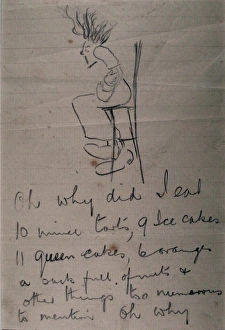 Oh why did I eat
10 mince tarts, 9 Ice cakes
11 queen cakes, 6 oranges
a sack full of nuts &
other things too numerous
to mention Oh why